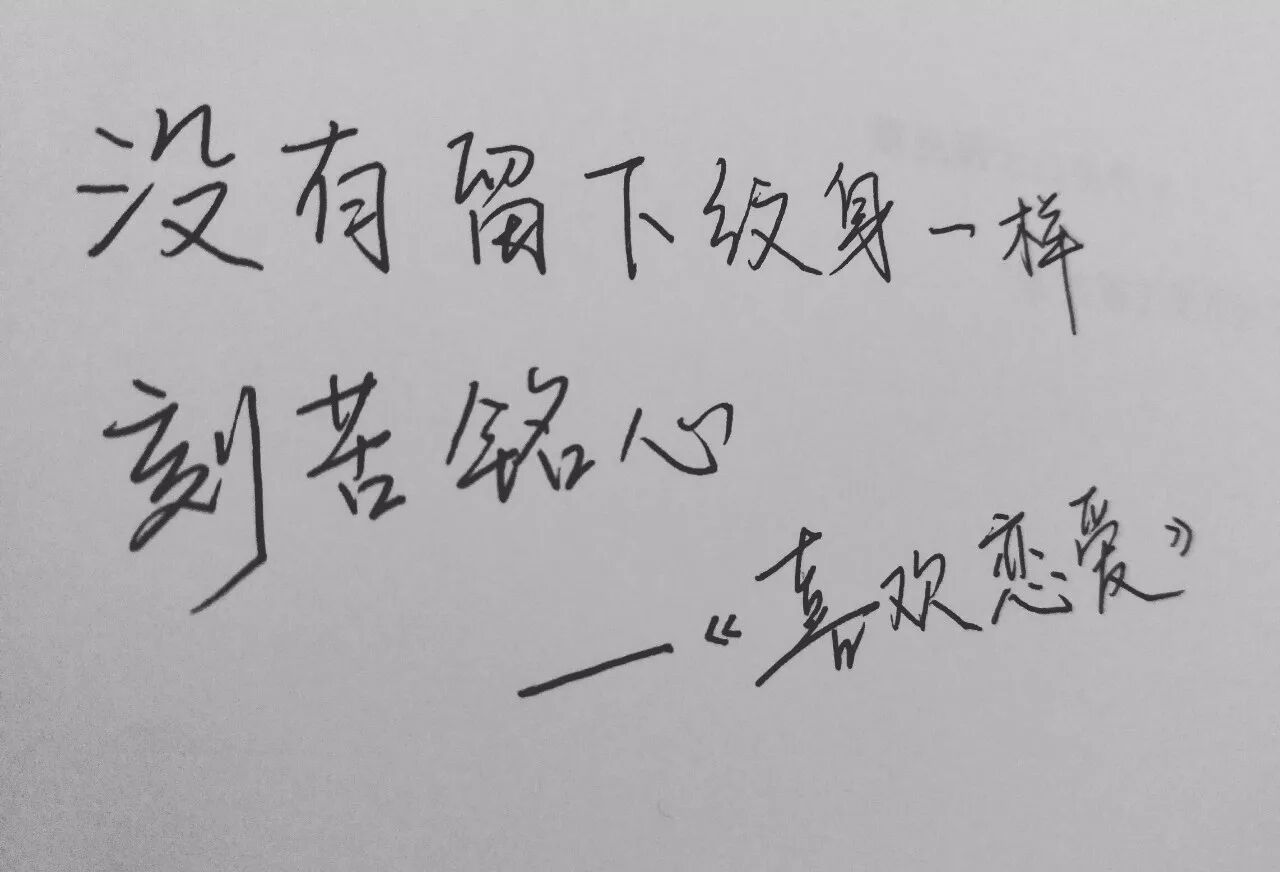 没有留下纹身一样
刻苦铭心
—《喜欢恋爱》